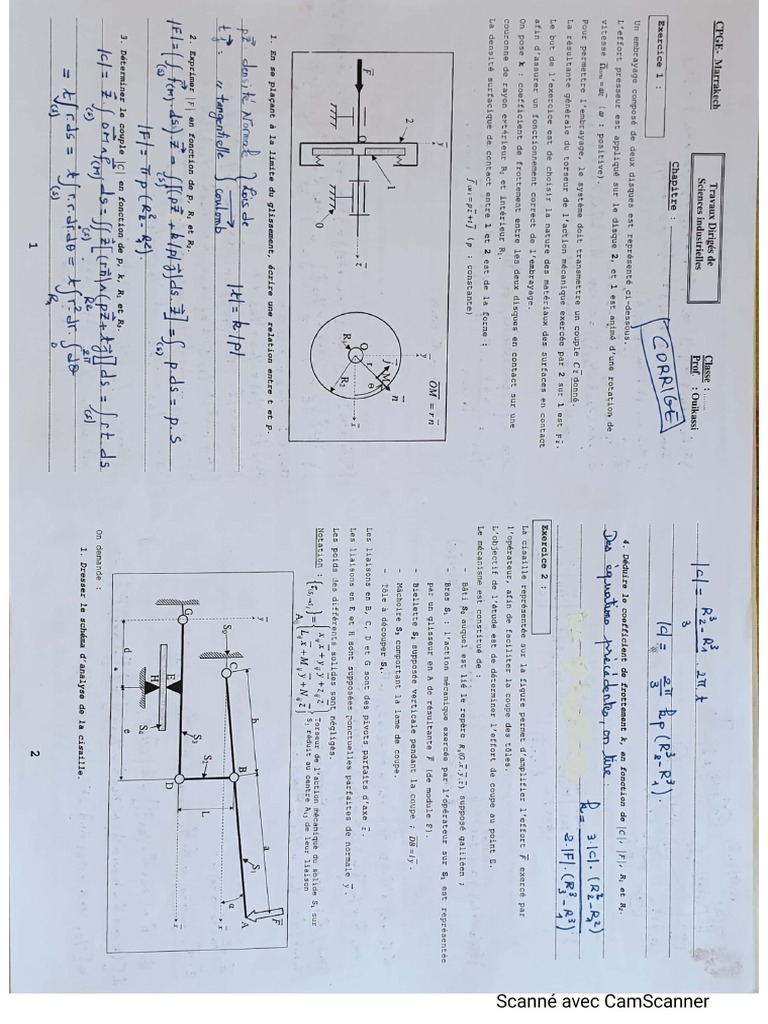 CPGE- Marrakech
Travaux Dirigés de
Sciences industrielles
Classe :
Prof. : Ouikassi
Chapitre :
CORRIGE
Exercice 1 :
Un embrayage composé de deux disques est représenté ci-dessous.
L'effort presseur est appliqué sur le disque 2, et 1 est animé d'une rotation de
positive).
Pour permettre l'embrayage, le système doit transmettre un couple C z donné.
La résultante générale du torseur de l'action mécanique exercée par 2 sur 1 est F z.
Le but de l'exercice est de choisir la nature des matériaux des surfaces en contact
afin d'assurer un fonctionnement correct de l'embrayage.
On pose k : coefficient de frottement entre les deux disques en contact sur une
couronne de rayon extérieur R₂ et intérieur R₁.
La densité surfacique de contact entre 1 et 2 est de la forme :
(p : constante)
F
2
1
0
O
y
z
y
x
R₁
R₂
r
θ
M
j
n
OM = r n
1. En se plaçant à la limite du glissement, écrire une relation entre t et p.
pz densité Normal
tj : " tangentielle
Lois de
coulomb
|t| = k|p|
2. Exprimer |F| en fonction de p, R₁ et R₂.
|F| = (∫ f(M).ds).z = ∫[(pz + k|p|j)ds.z] = ∫ p.ds = p.S
|F| = π p (R₂² - R₁²)
3. Déterminer le couple |C| en fonction de p, k, R₁ et R₂.
|C| = z.∫ OM ∧ f(M) ds = ∫[z.[(r n) ∧ (pz + tj)]] ds = ∫ r t.ds
= t∫ r.ds = t∫ r.r.dr dθ = t∫ r².dr.∫ dθ
1
|C| = (R₂³ - R₁³)/3 . 2π.t
|C| = 2π/3 kp (R₂³ - R₁³).
4. Déduire le coefficient de frottement k, en fonction de |C|, |F|, R₁ et R₂.
Des équations précédentes, on tire
k = 3.|C|.(R₂² - R₁²) / 2.|F|.(R₂³ - R₁³)
Exercice 2 :
La cisaille représentée sur la figure permet d'amplifier l'effort F exercé par
l'opérateur, afin de faciliter la coupe des tôles.
L'objectif de l'étude est de déterminer l'effort de coupe au point E.
Le mécanisme est constitué de :
- Bâti S₀ auquel est lié le repère R₀(O,x,y,z) supposé galiléen ;
- Bras S₁ : l'action mécanique exercée par l'opérateur sur S₁ est représentée
par un glisseur en A de résultante F (de module F).
- Biellette S₂ supposée verticale pendant la coupe ; DB = l y.
- Mâchoire S₃ comportant la lame de coupe.
- Tôle à découper S₄.
Les liaisons en B, C, D et G sont des pivots parfaits d'axe z.
Les liaisons en E et H sont supposées ponctuelles parfaites de normale y.
Les poids des différents solides sont négligés.
Notation :
Torseur de l'action mécanique du solide Sᵢ sur
Sⱼ réduit au centre Aᵢⱼ de leur liaison
y
b
a
F
A
α
S₁
B
C
S₀
S₂
L
x
D
S₃
E
H
S₄
G
d
e
On demande :
1. Dresser le schéma d'analyse de la cisaille.
2
Scanné avec CamScanner